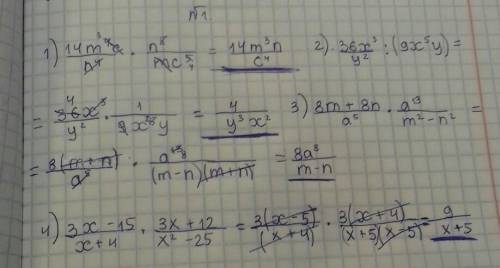 №1.
1) 14m³c/n⁷ · n⁸/mc⁵ = 14m³n/c⁴ 2) 36x³/y² : (9x⁵y) =
= 36x³/y² · 1/9x⁵y = 4/y³x² 3) 8m + 8n/a⁵ · a¹³/m² - n² =
= 8(m + n)/a⁵ · a¹³/(m - n)(m + n) = 8a⁸/m - n
4) 3x - 15/x + 4 · 3x + 12/x² - 25 = 3(x - 5)/(x + 4) · 3(x + 4)/(x + 5)(x - 5) = 9/x + 5